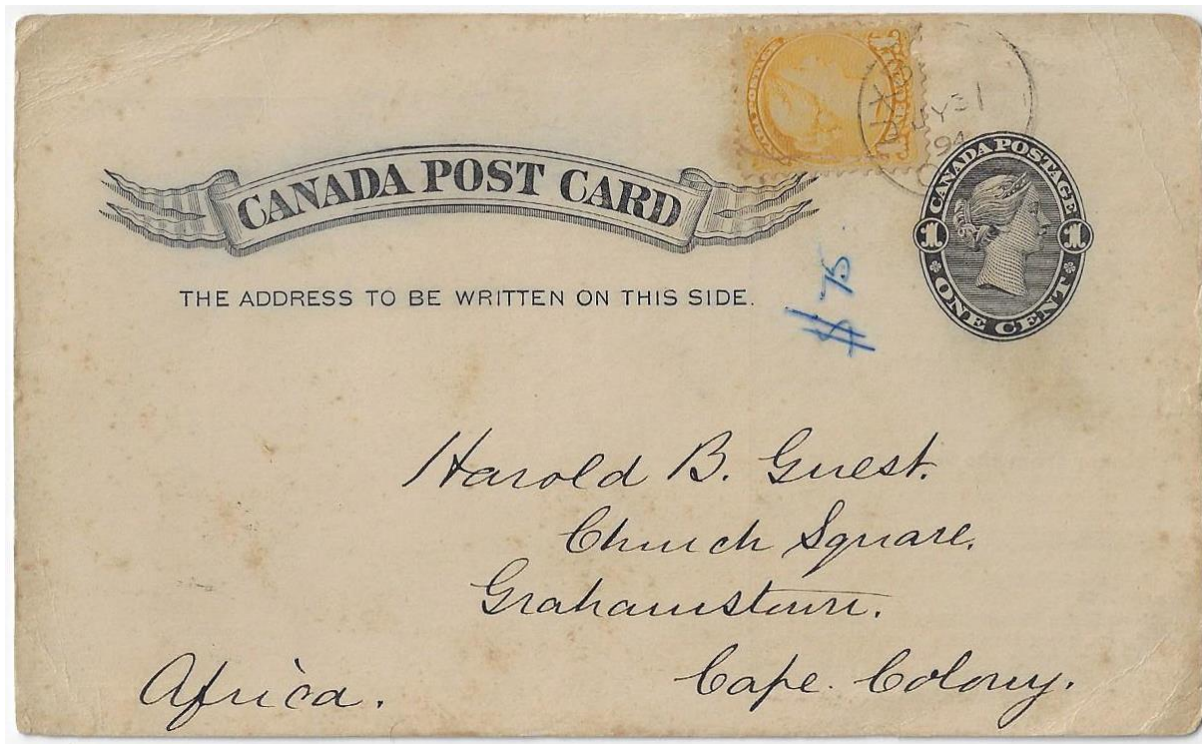 CANADA POST CARD
THE ADDRESS TO BE WRITTEN ON THIS SIDE.
JY 31
94
CANADA POSTAGE
1 1
ONE CENT
$75.
Harold B. Guest.
Church Square.
Grahamstown.
Cape Colony.
Africa.